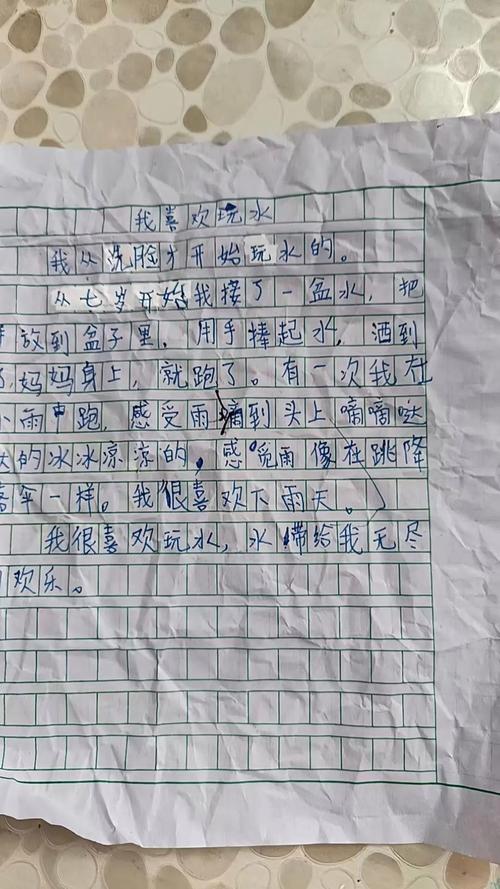 我喜欢玩水
我从洗脸才开始玩水的。
从七岁开始我接了一盆水，把
放到盆子里，用手捧起水，洒到
了妈妈身上，就跑了。有一次我在
小雨中跑，感受雨滴到头上嘀嘀哒
的冰冰凉凉的，感觉雨像在跳降
伞一样。我很喜欢下雨天。
我很喜欢玩水，水带给我无尽
欢乐。